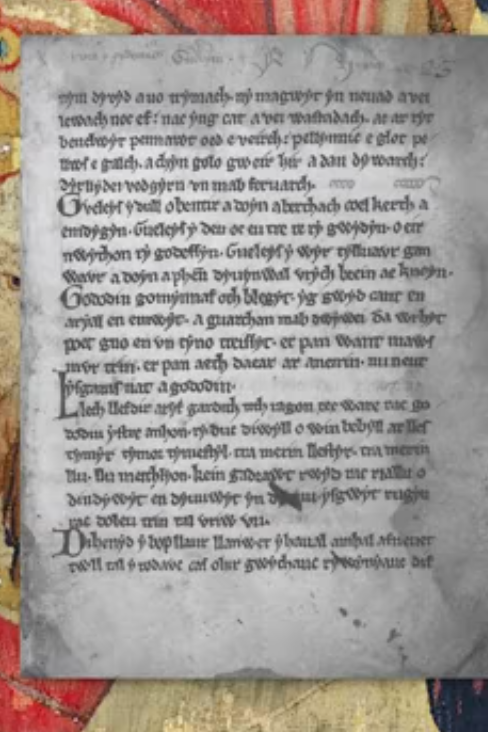 nym dyvyd a uo trymach. ny magwyt yn neuad a vei
lewach noc ef. nac yng cat a vei wastadach. ac ar ryt
benclwyt pennawt oed e veirch. pellynnic e glot pe
llws e galch. a chyn golo gweir hir a dan dywarch.
dyrllydei vedgyrn vn mab feruarch.
Gveleys y dull o bentir a doyn aberthach coel kerth a
emdygyn. Gueleys y deu oc eu tre re ry gwydyn. o eir
nwython ry godessyn. Gueleys y wyr tylluavr gan
wavr a doyn a phen dyuynwal vrych brein ae knoyn.
Gododin gomynnaf oth blegyt. yg gwyd cant en
aryal en emwyt. a guarchan mab dwywei da wrhyt
poet gno en vn tyno treissyt. er pan want maws
mvr trin. er pan aeth daear ar aneirin. nu neut
ysgaras nat a gododin.
Llech llefdir aryf gardith tith ragon tec ware rac go
dodin ystre anhon. ry duc diwyll o win bebyll ar lles
tymyr. tymor tymestyl. tra merin llestyr. tra merin
llu. llu meithlyon. kein gadrawt rwyd rac riallu o
dindywyt en dyuuwyt yn ysgwyt rugyn
rac doleu trin tal vriw vu.
Dihenyd y bop llaur llanwet y haual amhal afneuet
twll tal y rodavc cas ohir gwychauc rywynyauc dif